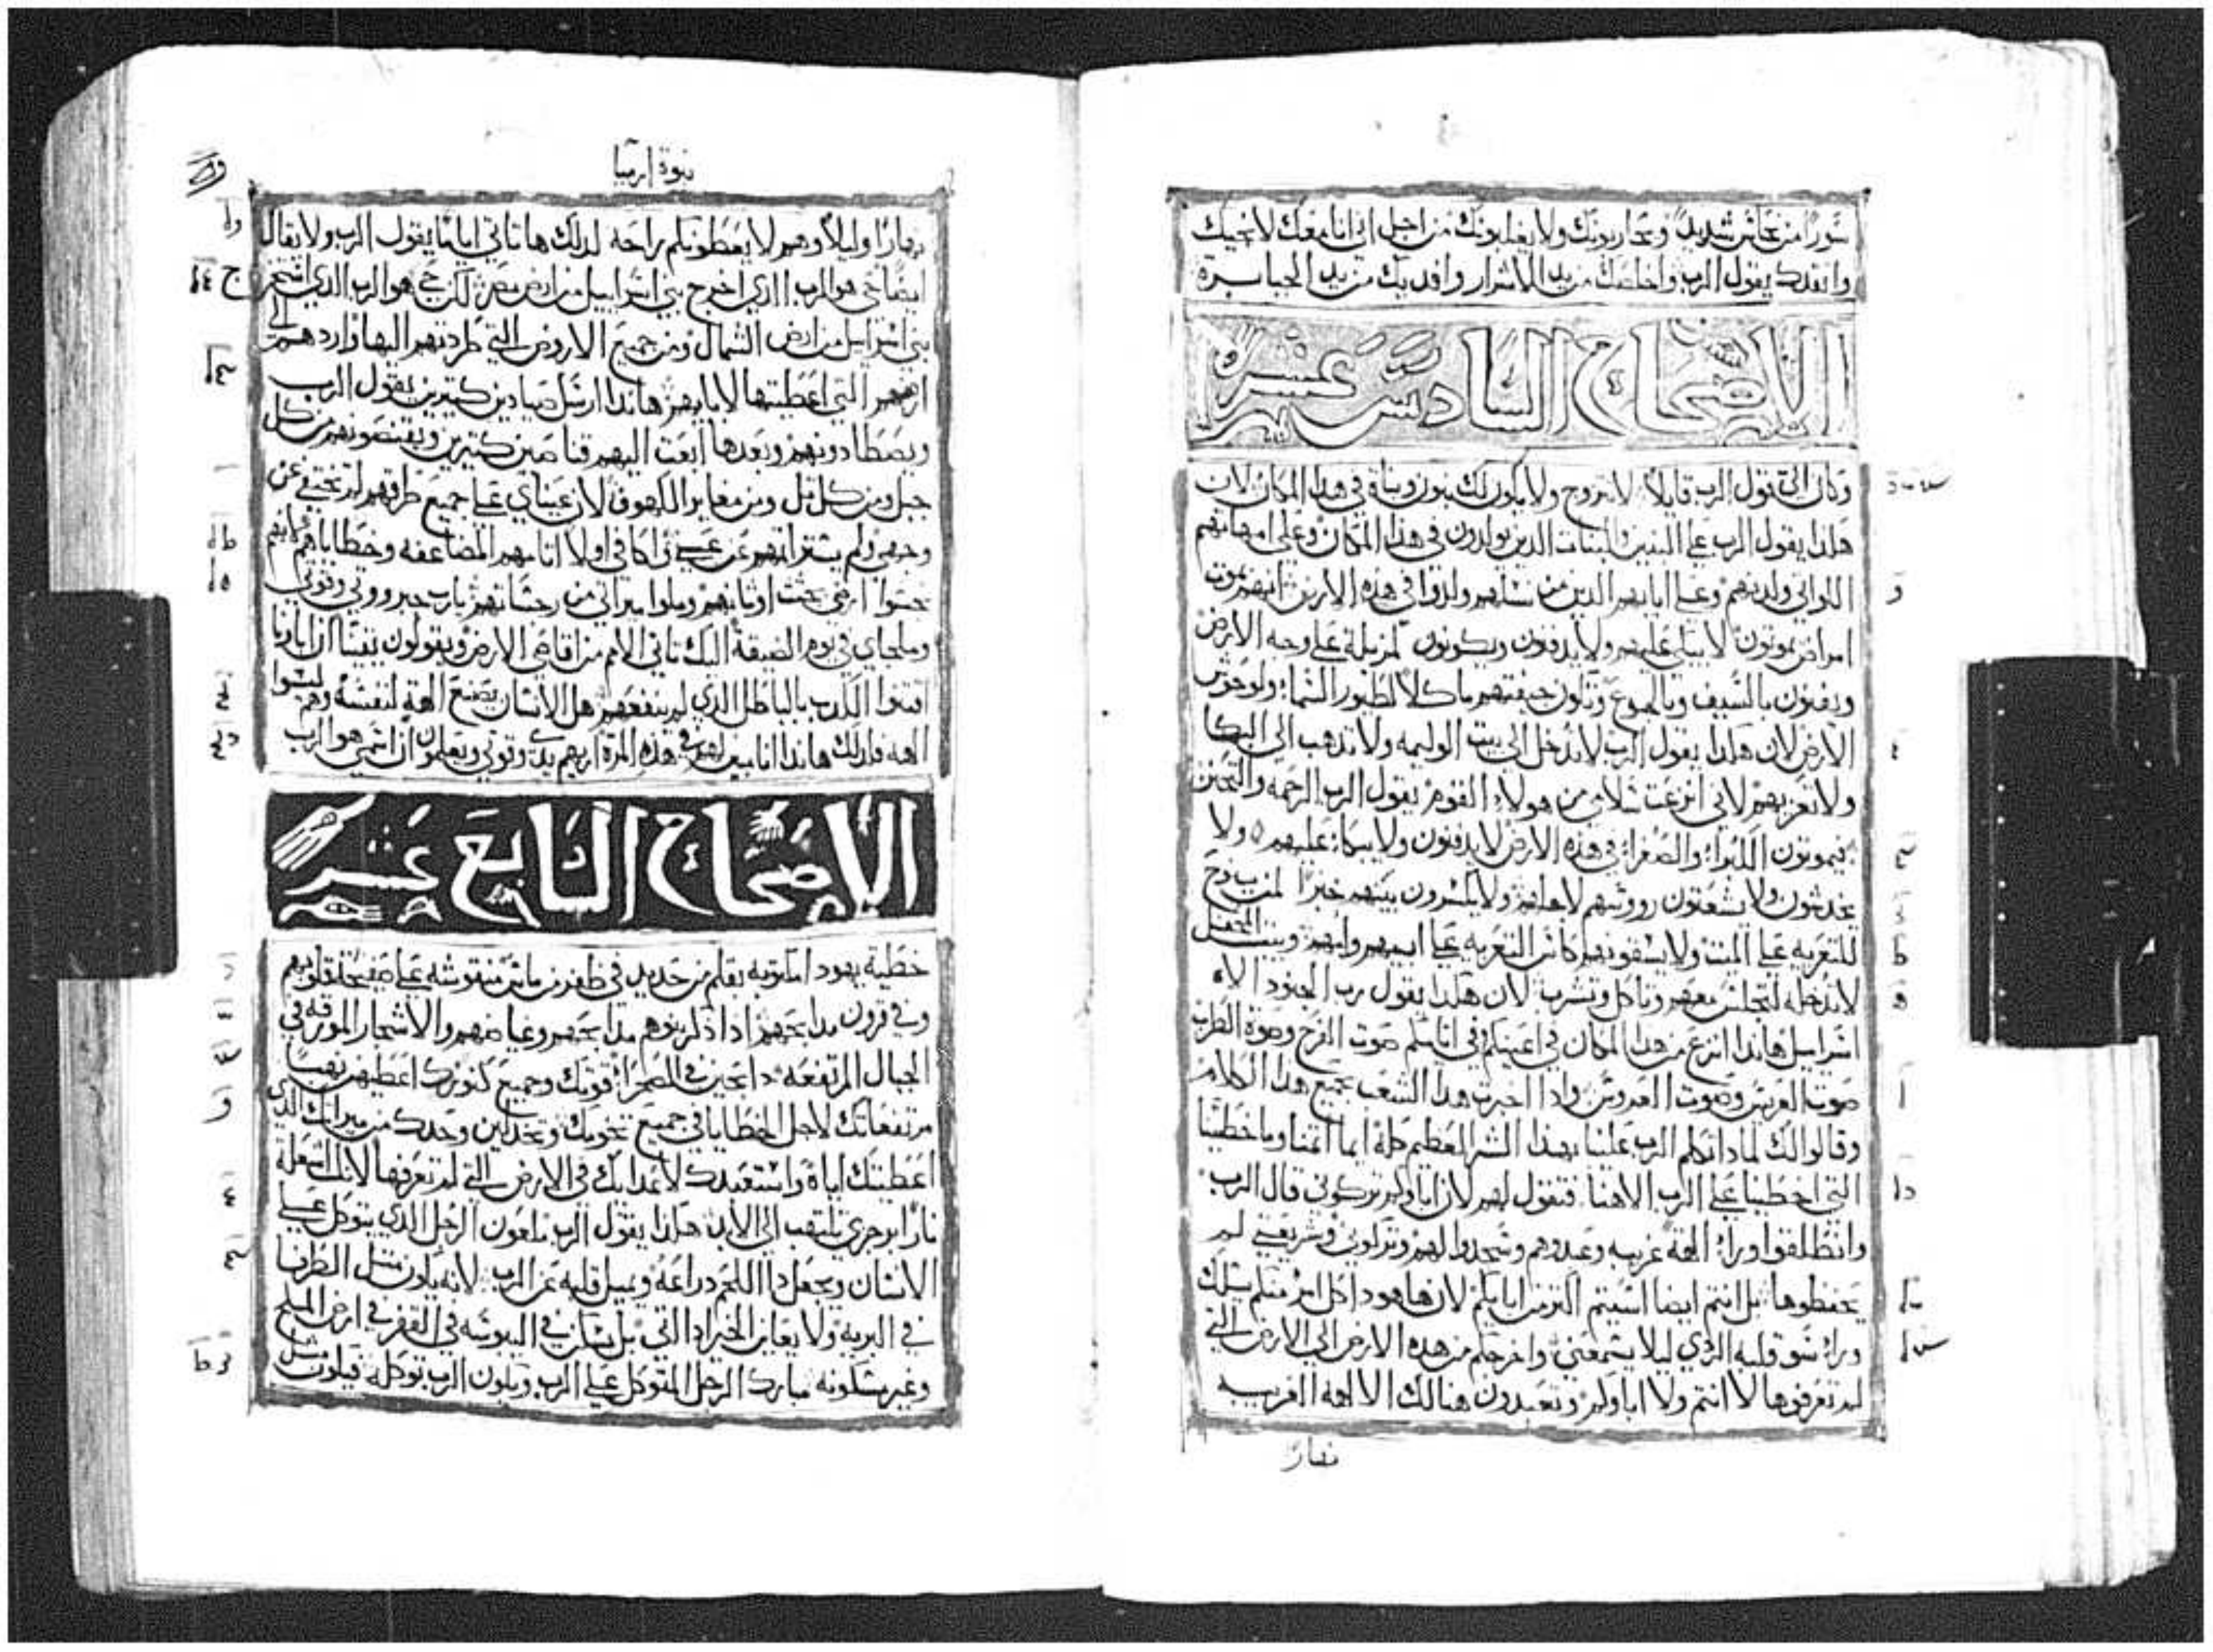 سورًا من نحاس شديد ويحاربونك ولا يغلبونك من اجل اني انا معك لانجيك
وانقدك يقول الرب واخلصك من يد الاشرار وافديك من يد الجبابرة
الاصحاح السادس عشر
وكان الي قول الرب قايلاً لا تتزوج ولا يكون لك بنون وبناة في هدا المكان لان
هكدا يقول الرب علي البنين والبنات الدين يولدون في هدا المكان وعلي امهاتهم
اللواتي ولدنهم وعلي ابايهم الدين من نسلهم ولدوا في هده الارض انهم بموت
امراض يموتون لا يبكى عليهم ولا يدفنون ويكونون كمزبلة علي وجه الارض
ويفنون بالسيف وبالجوع وتكون جيفتهم ماكلاً لطيور السماء ولوحوش
الارض لان هكدا يقول الرب لا تدخل الي بيت الوليمه ولا تدهب الي البكا
ولا تعزيهم لاني انزعت سلامي من هولاء القوم يقول الرب الرحمه والتحنن
فيموتون الكبراء والصغراء في هده الارض لا يدفنون ولا يبكاء عليهم ولا
يخدشون ولا يشعتون رووسهم لاجلهم ولا يكسرون بينهم خبزًا لمن ينوح
للتعزيه علي الميت ولا يسقونهم كاس التعزيه علي ابيهم وامهم وبيت المحفل
لا تدخله لتجلس معهم وتاكل وتشرب لان هكدا يقول رب الجنود الاه
اسراييل هاندا انزع من هدا المكان في اعينكم وفي ايامكم صوت الفرح وصوة الطرب
صوت العريس وصوت العروس وادا اخبرت هدا الشعب بجميع هدا الكلام
وقالوا لك لمادا تكلم الرب علينا بهدا الشر العظيم كله ايما اتمنا وما خطيتنا
التي اخطينا علي الرب الاهنا فتقول لهم لان اباوكم تركوني قال الرب
وانطلقوا وراء الهة غريبه وعبدوهم وسجدوا لهم وتركوني وشريعتي لم
يحفظوها بل انتم ايضا اسيتم اكتر من ابايكم لان هاهودا كل امر منكم يسلك
وراء سو قلبه الردي ليلا يسمعني واخرجكم من هده الارض الي الارض التي
لم تعرفوها لا انتم ولا اباوكم وتعبدون هنالك الالهه الغريبه
نهارًا
نبوة ارميا
نهارًا وليلاً وهم لا يعطونكم راحه لدلك ها تاتي ايامًا يقول الرب ولا يقال
ايضا حي هو الرب الدي اخرج بني اسراييل من ارض مصر لكن حي هو الرب الدي اخرج
بني اسراييل من ارض الشمال ومن جميع الاروض التي طردتهم اليها واردهم الي
ارضهم التي اعطيتها لابايهم هاندا ارسل صيادين كتيرين يقول الرب
ويصطادونهم وبعدها ابعت اليهم قناصين كتيرين ويقتنصونهم من كل
جبل ومن كل تل ومن مغاير الكهوف لان عيناي علي جميع طرقهم لم تختفي عن
وجهي ولم يستر اتمهم عن عيني واكافي اولا اتامهم المضاعفه وخطاياهم لانهم
نجسوا ارضي بجثث اوثانهم وملوا ميراتي من رجساتهم يارب جبرووتي وقوتي
وملجاي في يوم الضيقة اليك تاتي الامم من اقاصي الارض ويقولون يقينًا ان اباونا
اقتنوا الكدب بالباطل الدي لم ينفعهم هل الانسان يصنع الهة لنفسه وهم ليسوا
الهه فلدلك هاندا انا مبين لهم في هده المرة اريهم يدي وقوتي ويعلمون ان اسمي هو الرب
الاصحاح السابع عشر
خطية يهودا مكتوبه بقلم من حديد في ظفر من ماس منقوشه علي صفيحة قلوبهم
وفي قرون مدابحهم ادا دكر بنوهم مدابحهم وغياضهم والاشجار المورقه في
الجبال المرتفعه دابحين في الصحراء قوتك وجميع كنوزك اعطيهن نهبًا
مرتفعاتك لاجل الخطايا في جميع تخومك وتخدلين وحدك من ميراتك الدي
اعطيتك اياه واستعبدك لاعدايك في الارض التي لم تعرفها لانك اشعلة
نارًا برجزي تلتهب الي الابد هكدا يقول الرب ملعون الرجل الدي يتوكل علي
الانسان ويجعل دا اللحم دراعه ويميل قلبه عن الرب لانه يكون متل الطرفا
في البريه ولا يعاين الخير ادا اتي بل يسكن في اليبوسه في القفر في ارض الملح
وغير مسكونه مبارك الرجل المتوكل علي الرب ويكون الرب توكله فيكون متل